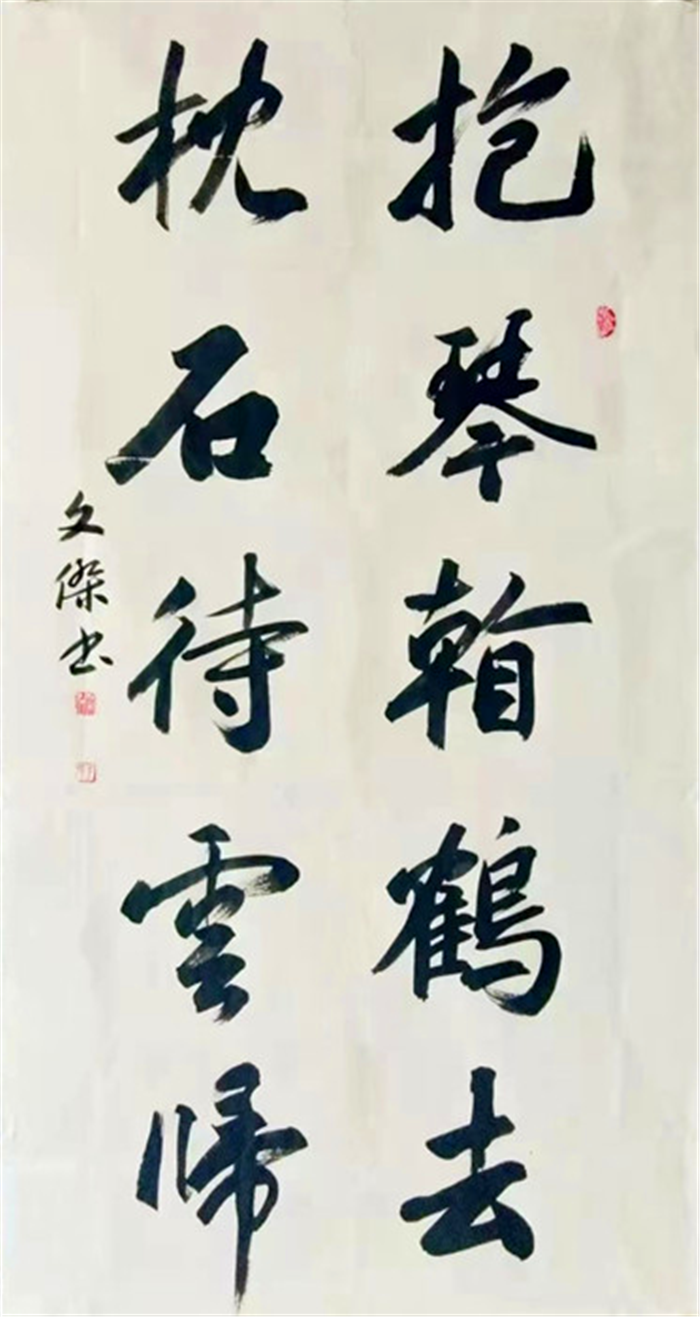 抱琴看鶴去
枕石待雲帰
文傑书